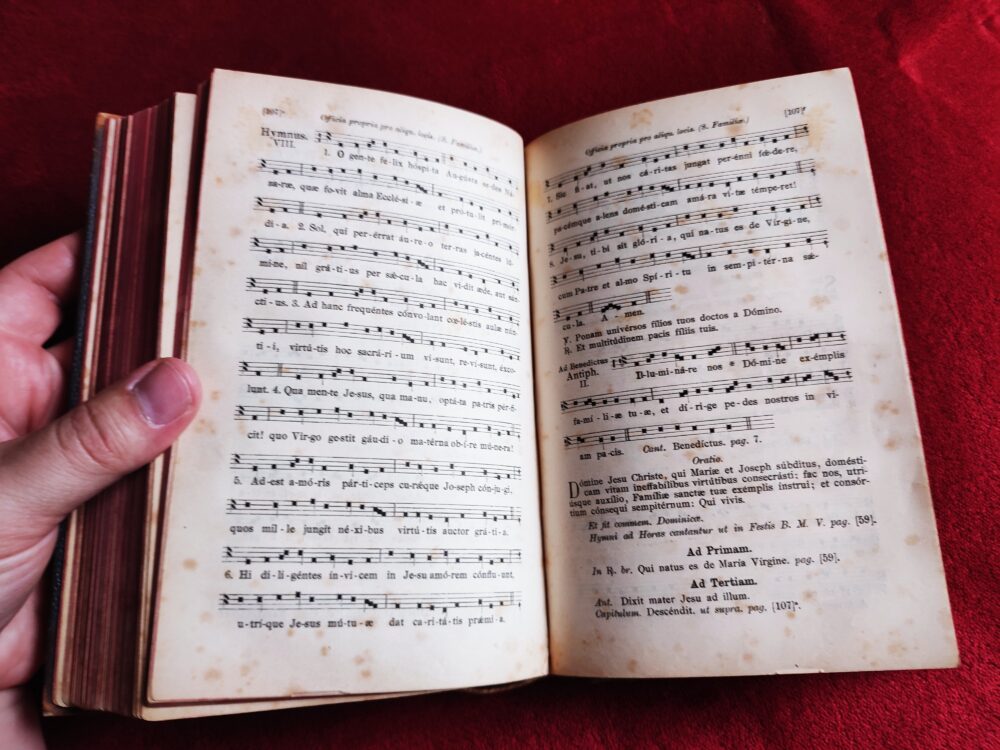 Officia propria pro aliqu. locis. (S. Familiæ.)
Hymnus.
VIII.
1. O gen-te fe-lix hóspi-ta Augústa se-des Ná-
saræ, quæ fo-vit alma Ecclé-si-æ et pró-tu-lit primór-
di-a. 2. Sol, qui per-érrat áu-re-o ter-ras ja-céntes lú-
mi-ne, nil grá-ti-us per sǽ-cu-la hac vi-dit æde, aut sán-
cti-us. 3. Ad hanc frequéntes cónvo-lant cœ-léstis aulæ nún-
ti-i, virtú-tis hoc sacrá-ri-um vi-sunt, re-ví-sunt, éxco-
lunt. 4. Qua men-te Jesus, qua ma-nu, optá-ta pa-tris pér-fi-
cit! quo Vir-go ge-stit gáu-di-o ma-térna ob-í-re mú-ne-ra!
5. Ad-est a-mó-ris pár-ti-ceps cu-ræque Jo-seph cón-ju-gi,
quos mil-le jungit né-xi-bus virtú-tis auctor grá-ti-a.
6. Hi di-li-géntes ín-vi-cem in Je-su amó-rem cónflu-unt,
u-trí-que Je-sus mú-tu-æ dat ca-ri-tá-tis prǽmi-a.
Officia propria pro aliqu. locis. (S. Familiæ.) [107]*
7. Sic fi-at, ut nos cá-ri-tas jungat per-énni fœ́-de-re,
pa-cémque a-lens domé-sti-cam amá-ra vi-tæ témpe-ret!
8. Je-su, ti-bi sit gló-ri-a, qui na-tus es de Vír-gi-ne,
cum Pa-tre et al-mo Spí-ri-tu in sem-pi-tér-na sǽ-
cu-la. A-men.
℣. Ponam univérsos fílios tuos doctos a Dómino.
℟. Et multitúdinem pacis fíliis tuis.
Ad Benedíctus
Antiph.
II.
I-llu-mi-ná-re nos * Dó-mi-ne exémplis
fa-mí-li-æ tu-æ, et dí-ri-ge pe-des nostros in vi-
am pa-cis. Cant. Benedíctus. pag. 7.
Oratio.
Dómine Jesu Christe, qui Maríæ et Joseph súbditus, domésti-
cam vitam ineffabílibus virtútibus consecrásti: fac nos, utri-
úsque auxílio, Famíliæ sanctæ tuæ exémplis ínstrui; et consór-
tium cónsequi sempitérnum: Qui vivis.
Et fit commem. Dominicæ.
Hymni ad Horas cantantur ut in Festis B. M. V. pag. [59].
Ad Primam.
In ℟. br. Qui natus es de María Vírgine. pag. [59].
Ad Tertiam.
Ant. Dixit mater Jesu ad illum.
Capitulum. Descéndit. ut supra. pag. [107]*.